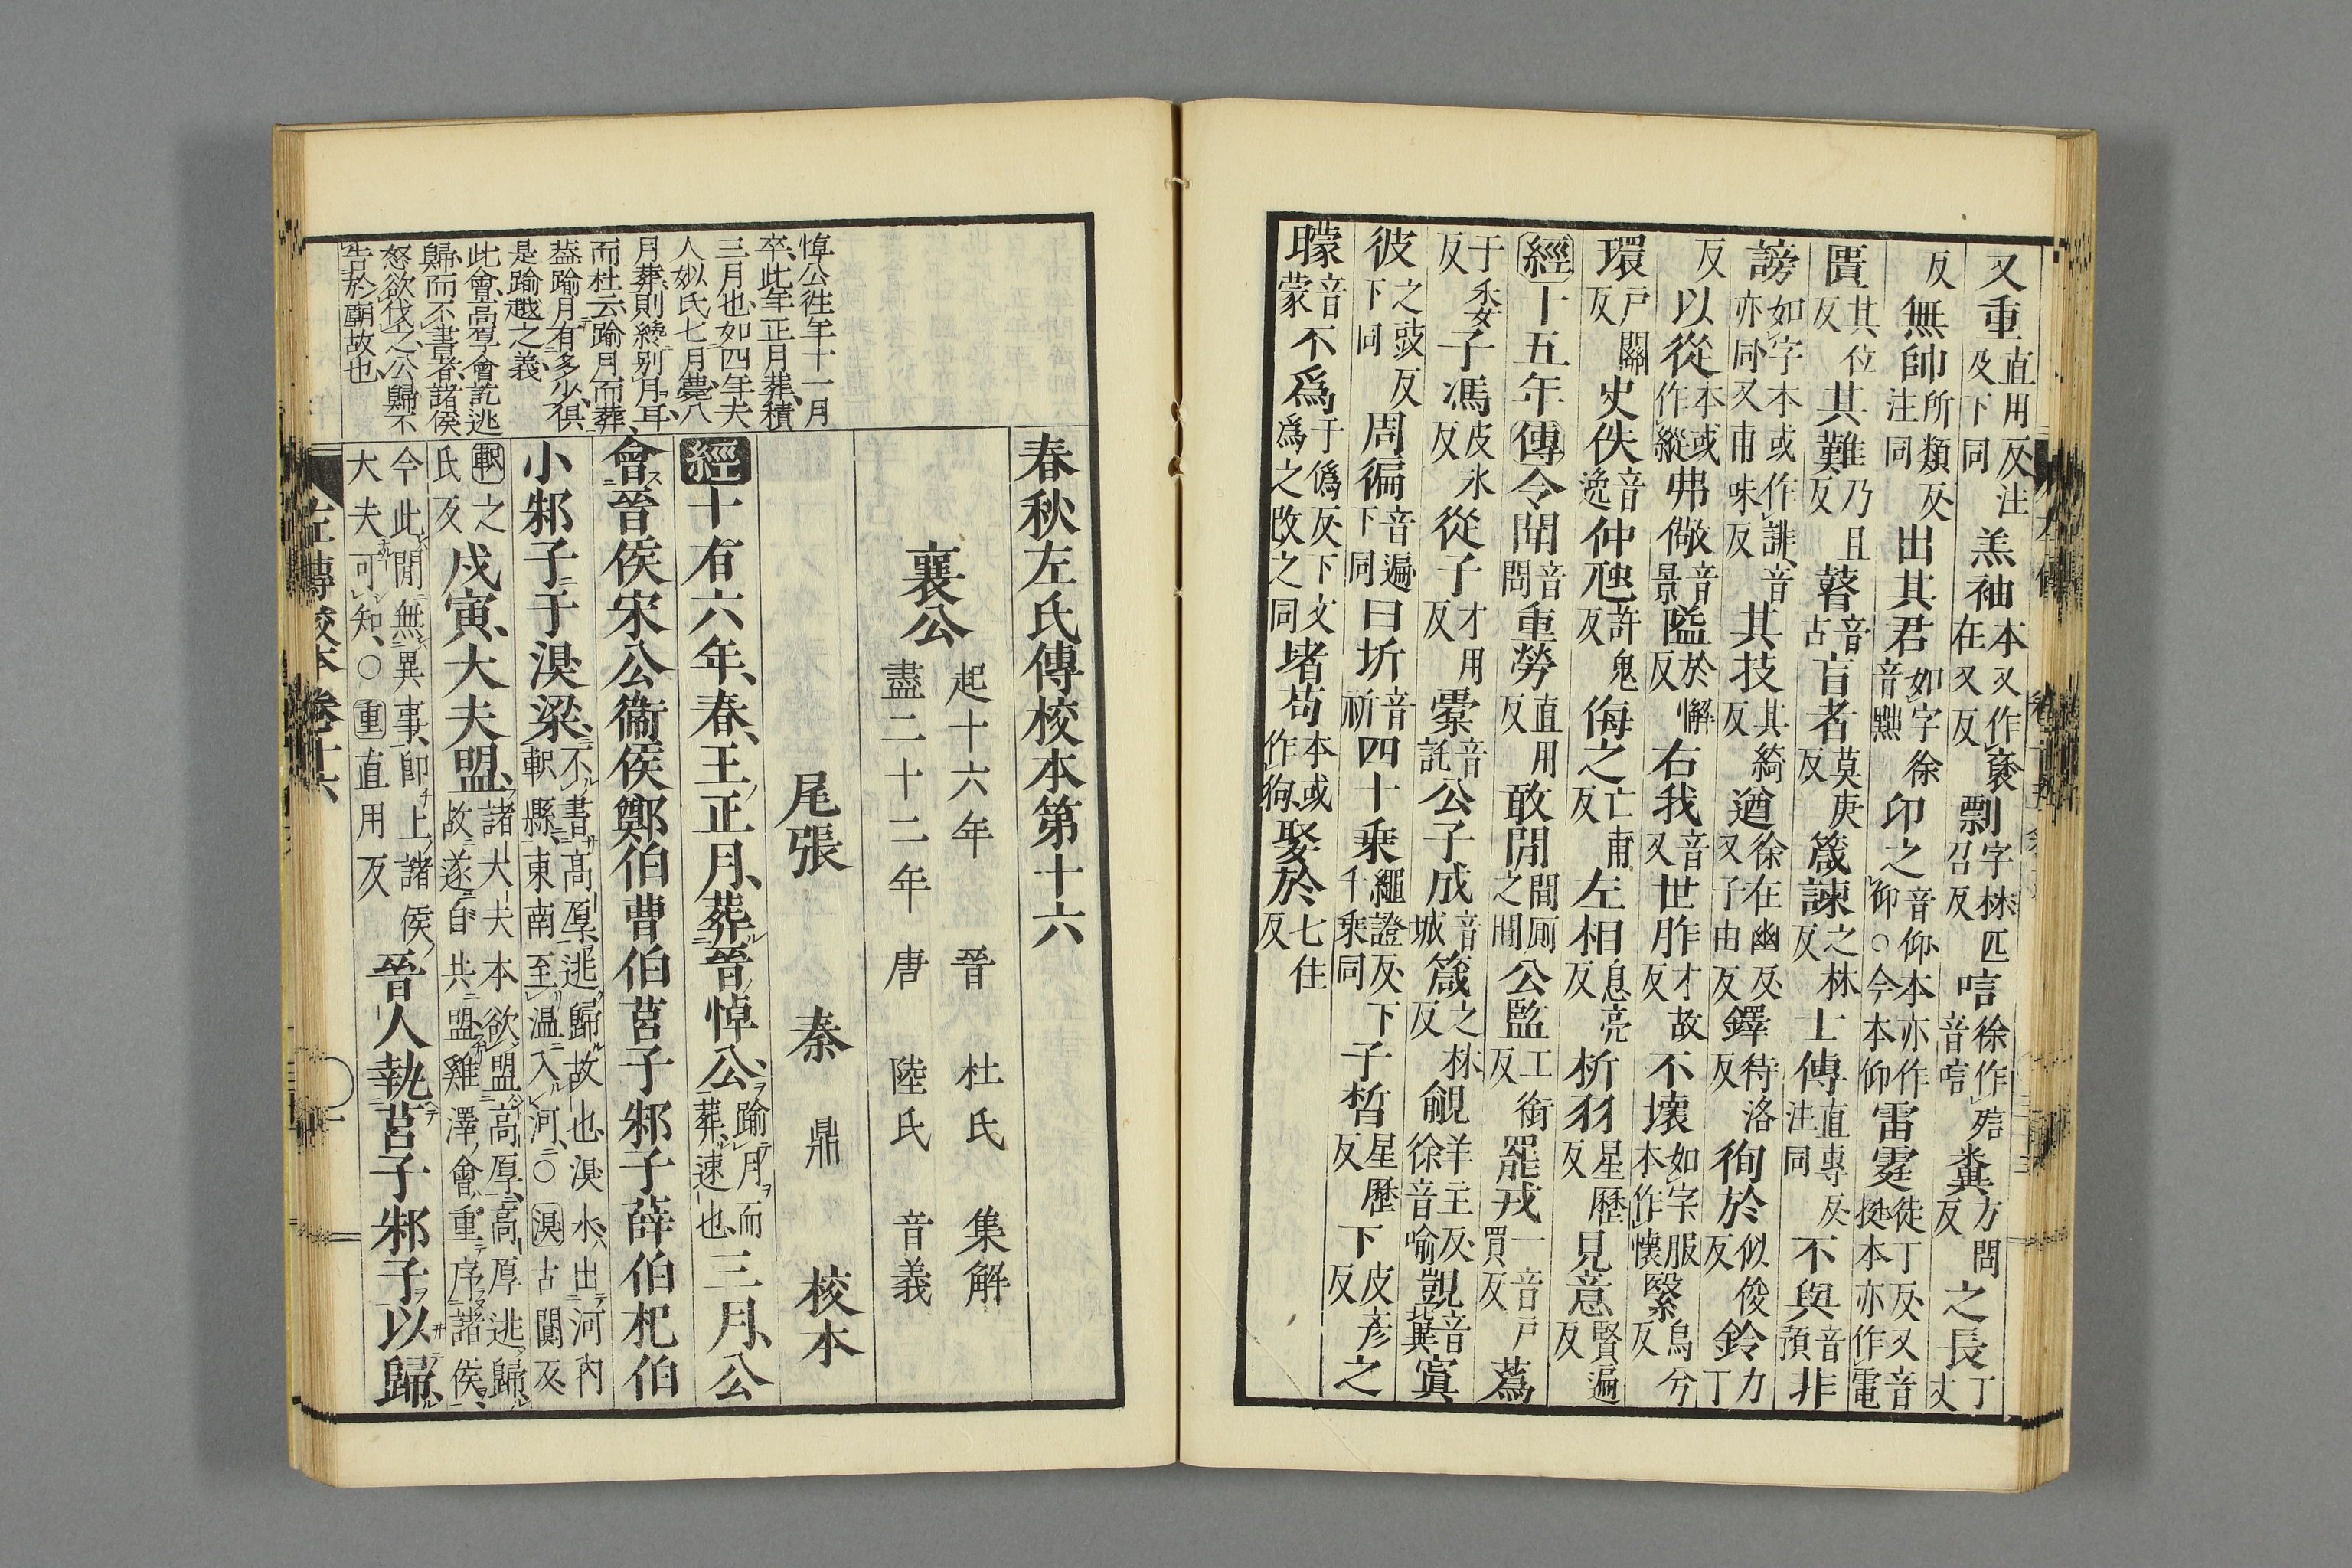 又重直用反注及下同羔袖本又作褎在又反剽字林匹召反唁徐作殕音唁糞方問反之長丁丈
反無帥所類反注同出其君如字徐音黜卬之音仰本亦作仰○今本仰雷霆徒丁反又音挺本亦作電
匱其位反其難乃旦反瞽音古盲者莫庚反箴諫之林反士傳直專反注同不與音預非
謗如字本或作誹音亦同又甫味反其技其綺反遒徐在幽反又子由反鐸待洛反徇於似俊反鈴力丁
反以從本或作縱弗儆音景隘於懈反右我音又世胙才故反不壞如字服本作懷繄烏兮反
環戶關反史佚音逸仲虺許鬼反侮之亡甫反左相息亮反析羽星歷反見意賢遍反
經十五年傳令聞音問重勞直用反敢閒閒厠之閒公監工銜反罷戎一音戶買反蒍
于委反子馮皮氷反從子才用反橐音託公子成音城箴之林反覦羊主反徐音喻覬音冀寘
彼之豉反下同周徧音遍下同曰圻音祈四十乘繩證反下千乘同子皙星歷反下皮彦反之
矇音蒙不爲于僞反下文爲之改之同堵苟本或作狗娶於七住反
春秋左氏傳校本第十六
襄公起十六年盡二十二年
晉 杜氏 集解
唐 陸氏 音義
尾張 秦 鼎 校本
悼公徃年十一月
卒、此年正月葬、積
三月也、如四年夫
人姒氏七月薨、八
月葬、則終別月耳、
而杜云踰月而葬、
葢踰月有多少、俱
是踰越之義、
此會、高厚會訖逃
歸、而不書者、諸侯
怒欲伐之、公歸不
告於廟故也、
經十有六年、春、王ノ正月、葬晉悼公、踰月而葬、速也、三月、公
會晉侯宋公衞侯鄭伯曹伯莒子邾子薛伯杞伯
小邾子于湨梁、不書高厚、逃歸故也、湨水出河內軹縣、東南至溫入河、○湨古闃反
軹之氏反戊寅、大夫盟、諸大夫本欲盟高厚、高厚逃歸、故遂自共盟、雞澤會、重序諸侯、
今此閒無異事、即上諸侯大夫可知、○重直用反晉人執莒子邾子以歸、
左傳校本卷十六